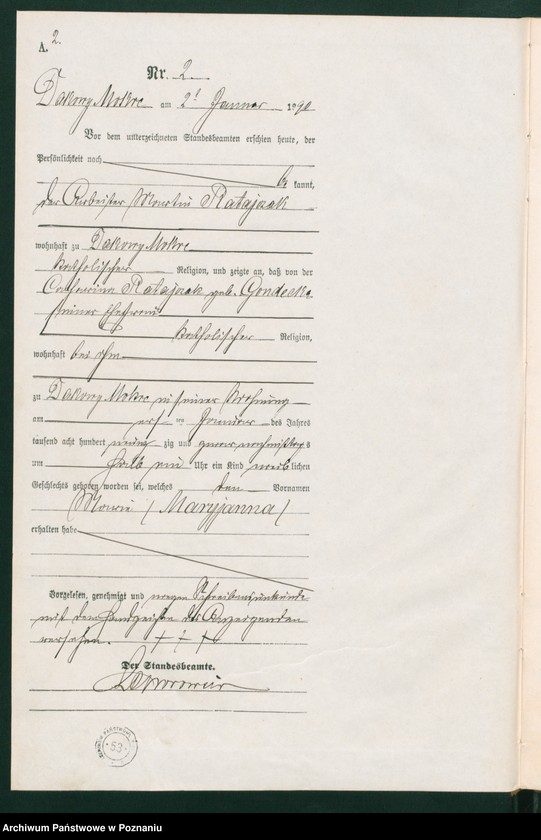 A. 2.
Nr. 2.
Dakowy Mokre am 2t Januar 1890
Vor dem unterzeichneten Standesbeamten erschien heute, der
Persönlichkeit nach
be kannt,
der Arbeiter Martin Ratajczak
wohnhaft zu Dakowy Mokre
katholischer Religion, und zeigte an, daß von der
Catharina Ratajczak geb. Gondecka
seiner Ehefrau
katholischer Religion,
wohnhaft bei ihm
zu Dakowy Mokre in seiner Wohnung
am ersten Januar des Jahres
tausend acht hundert neunzig und zwar nachmittags
um halb ein Uhr ein Kind weiblichen
Geschlechts geboren worden sei, welches den Vornamen
Marie (Maryjanna)
erhalten habe
Vorgelesen, genehmigt und wegen Schreibensunkunde
mit dem Handzeichen des Anzeigenden
versehen. + + +
Der Standesbeamte.
53
Archiwum Państwowe w Poznaniu